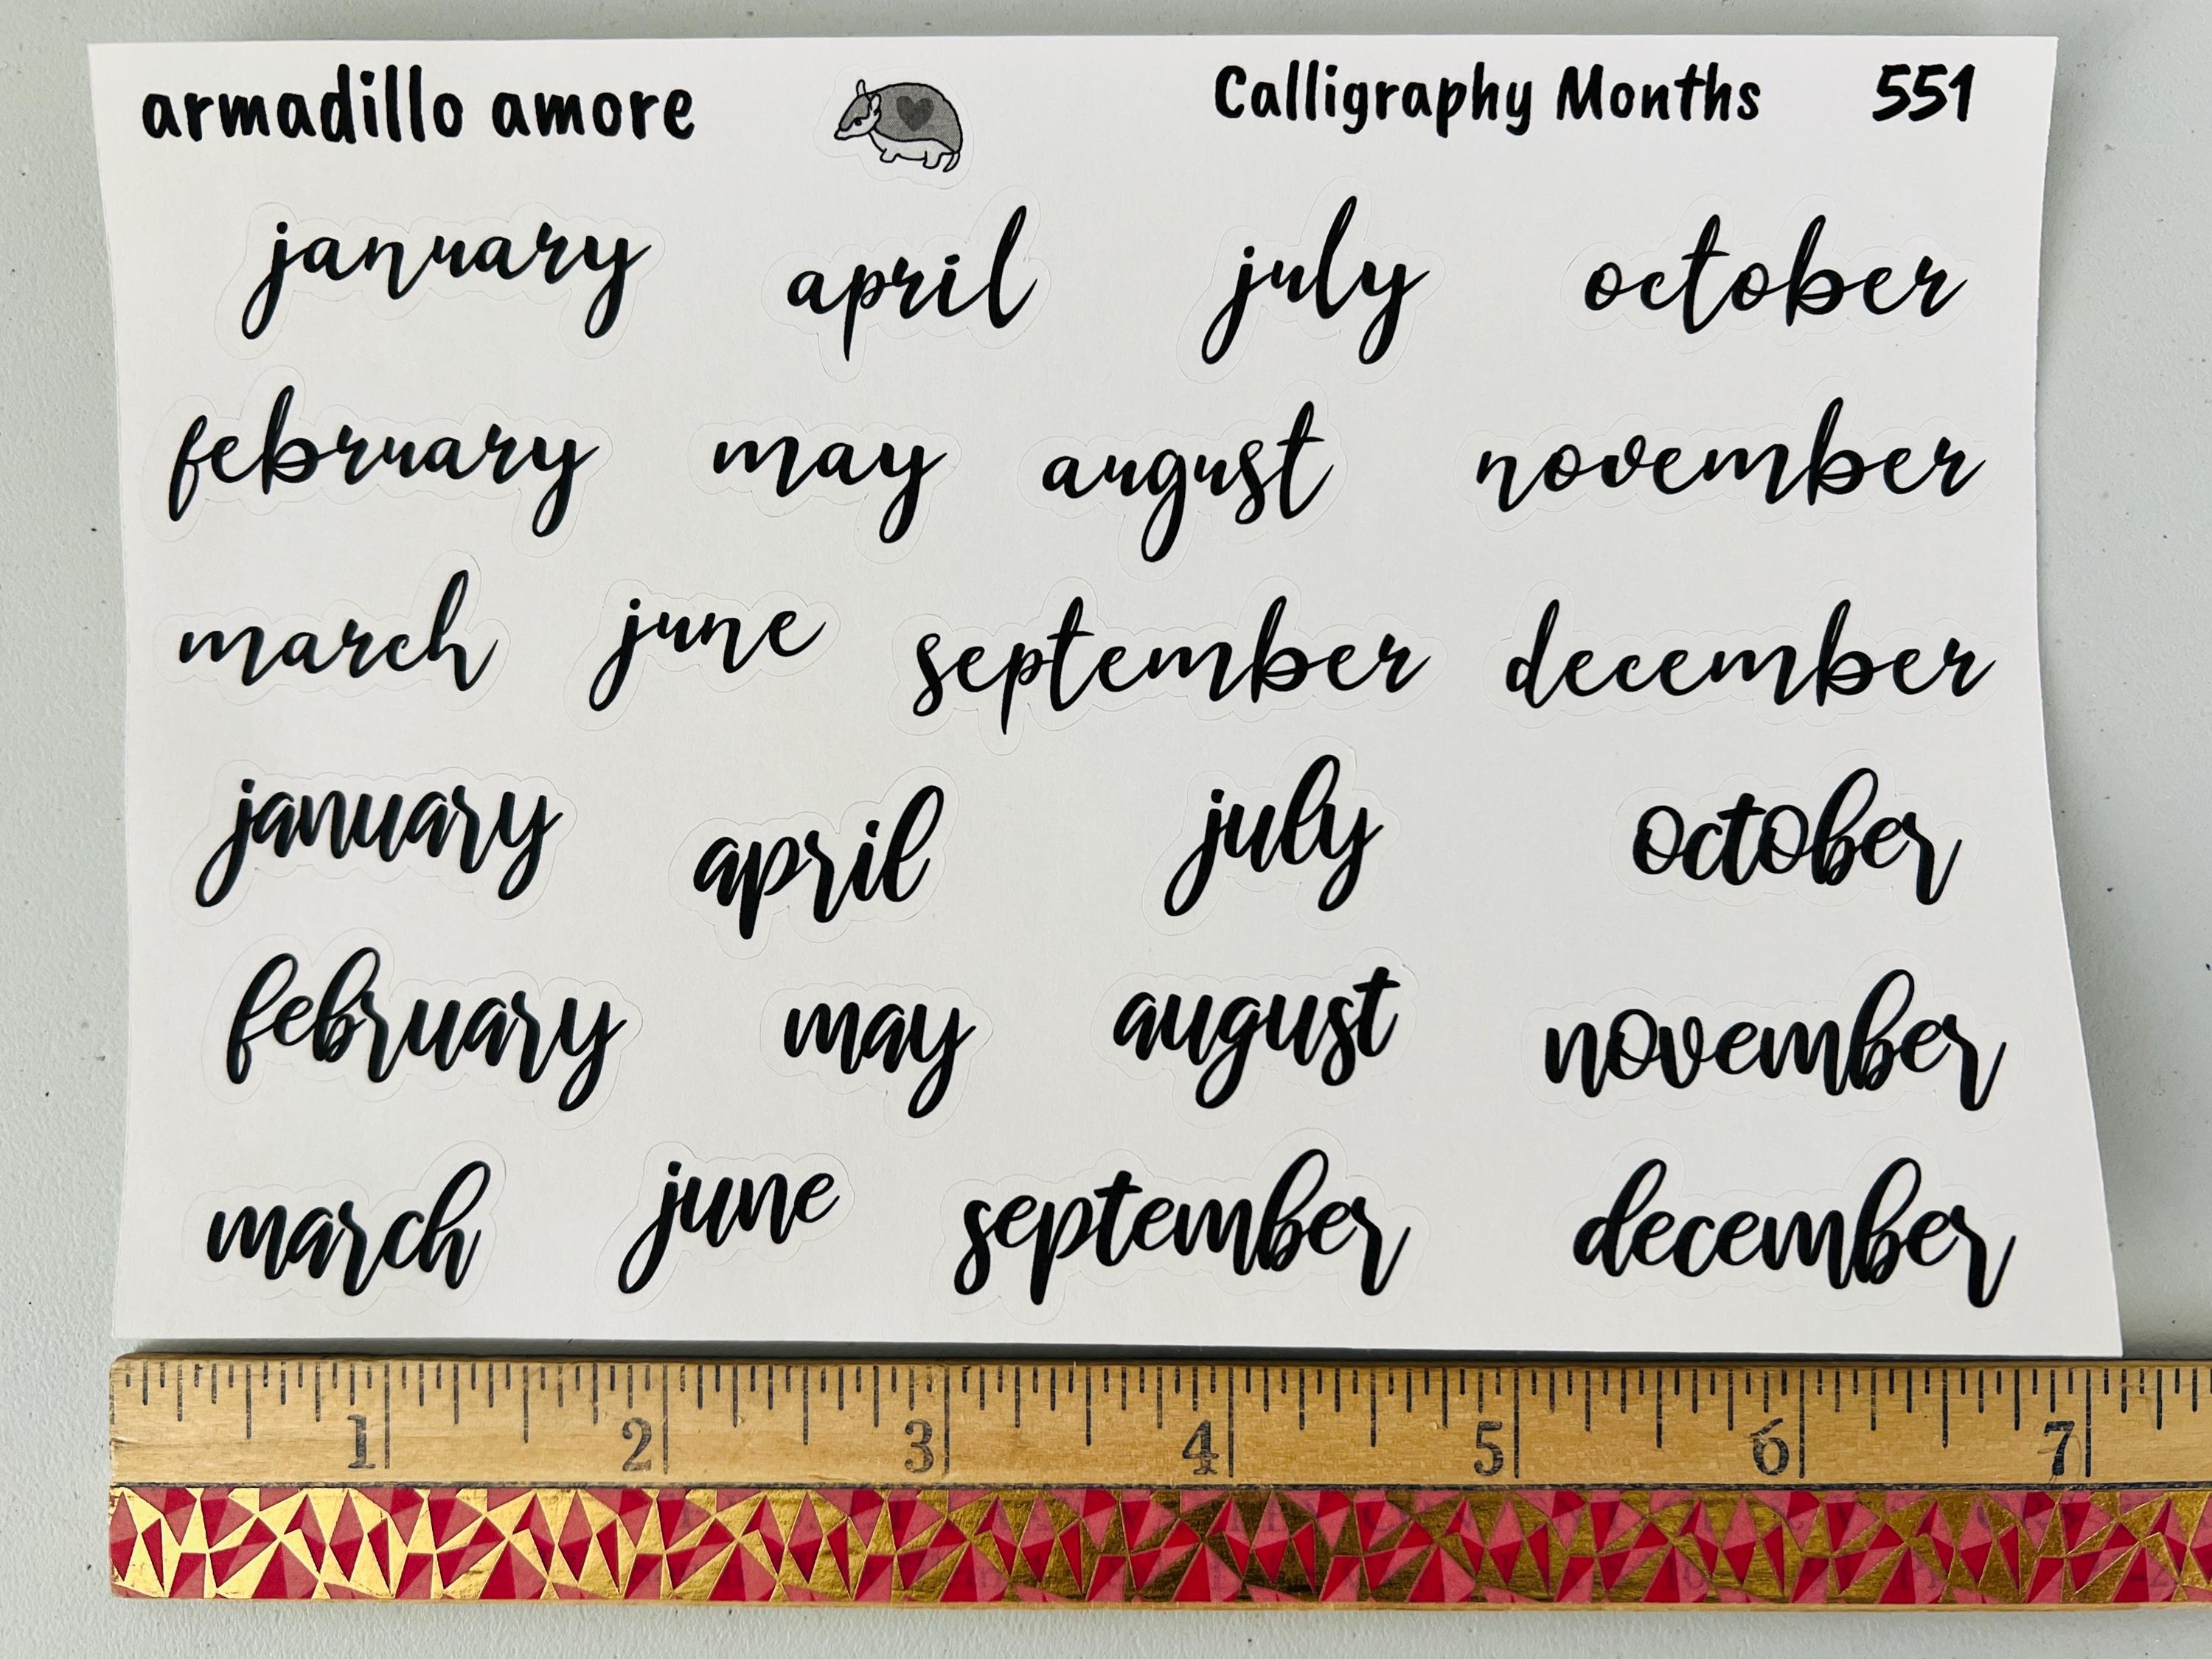 armadillo amore Calligraphy Months 551
january april july october
february may august november
march june september december
january april july october
february may august november
march june september december
1 2 3 4 5 6 7